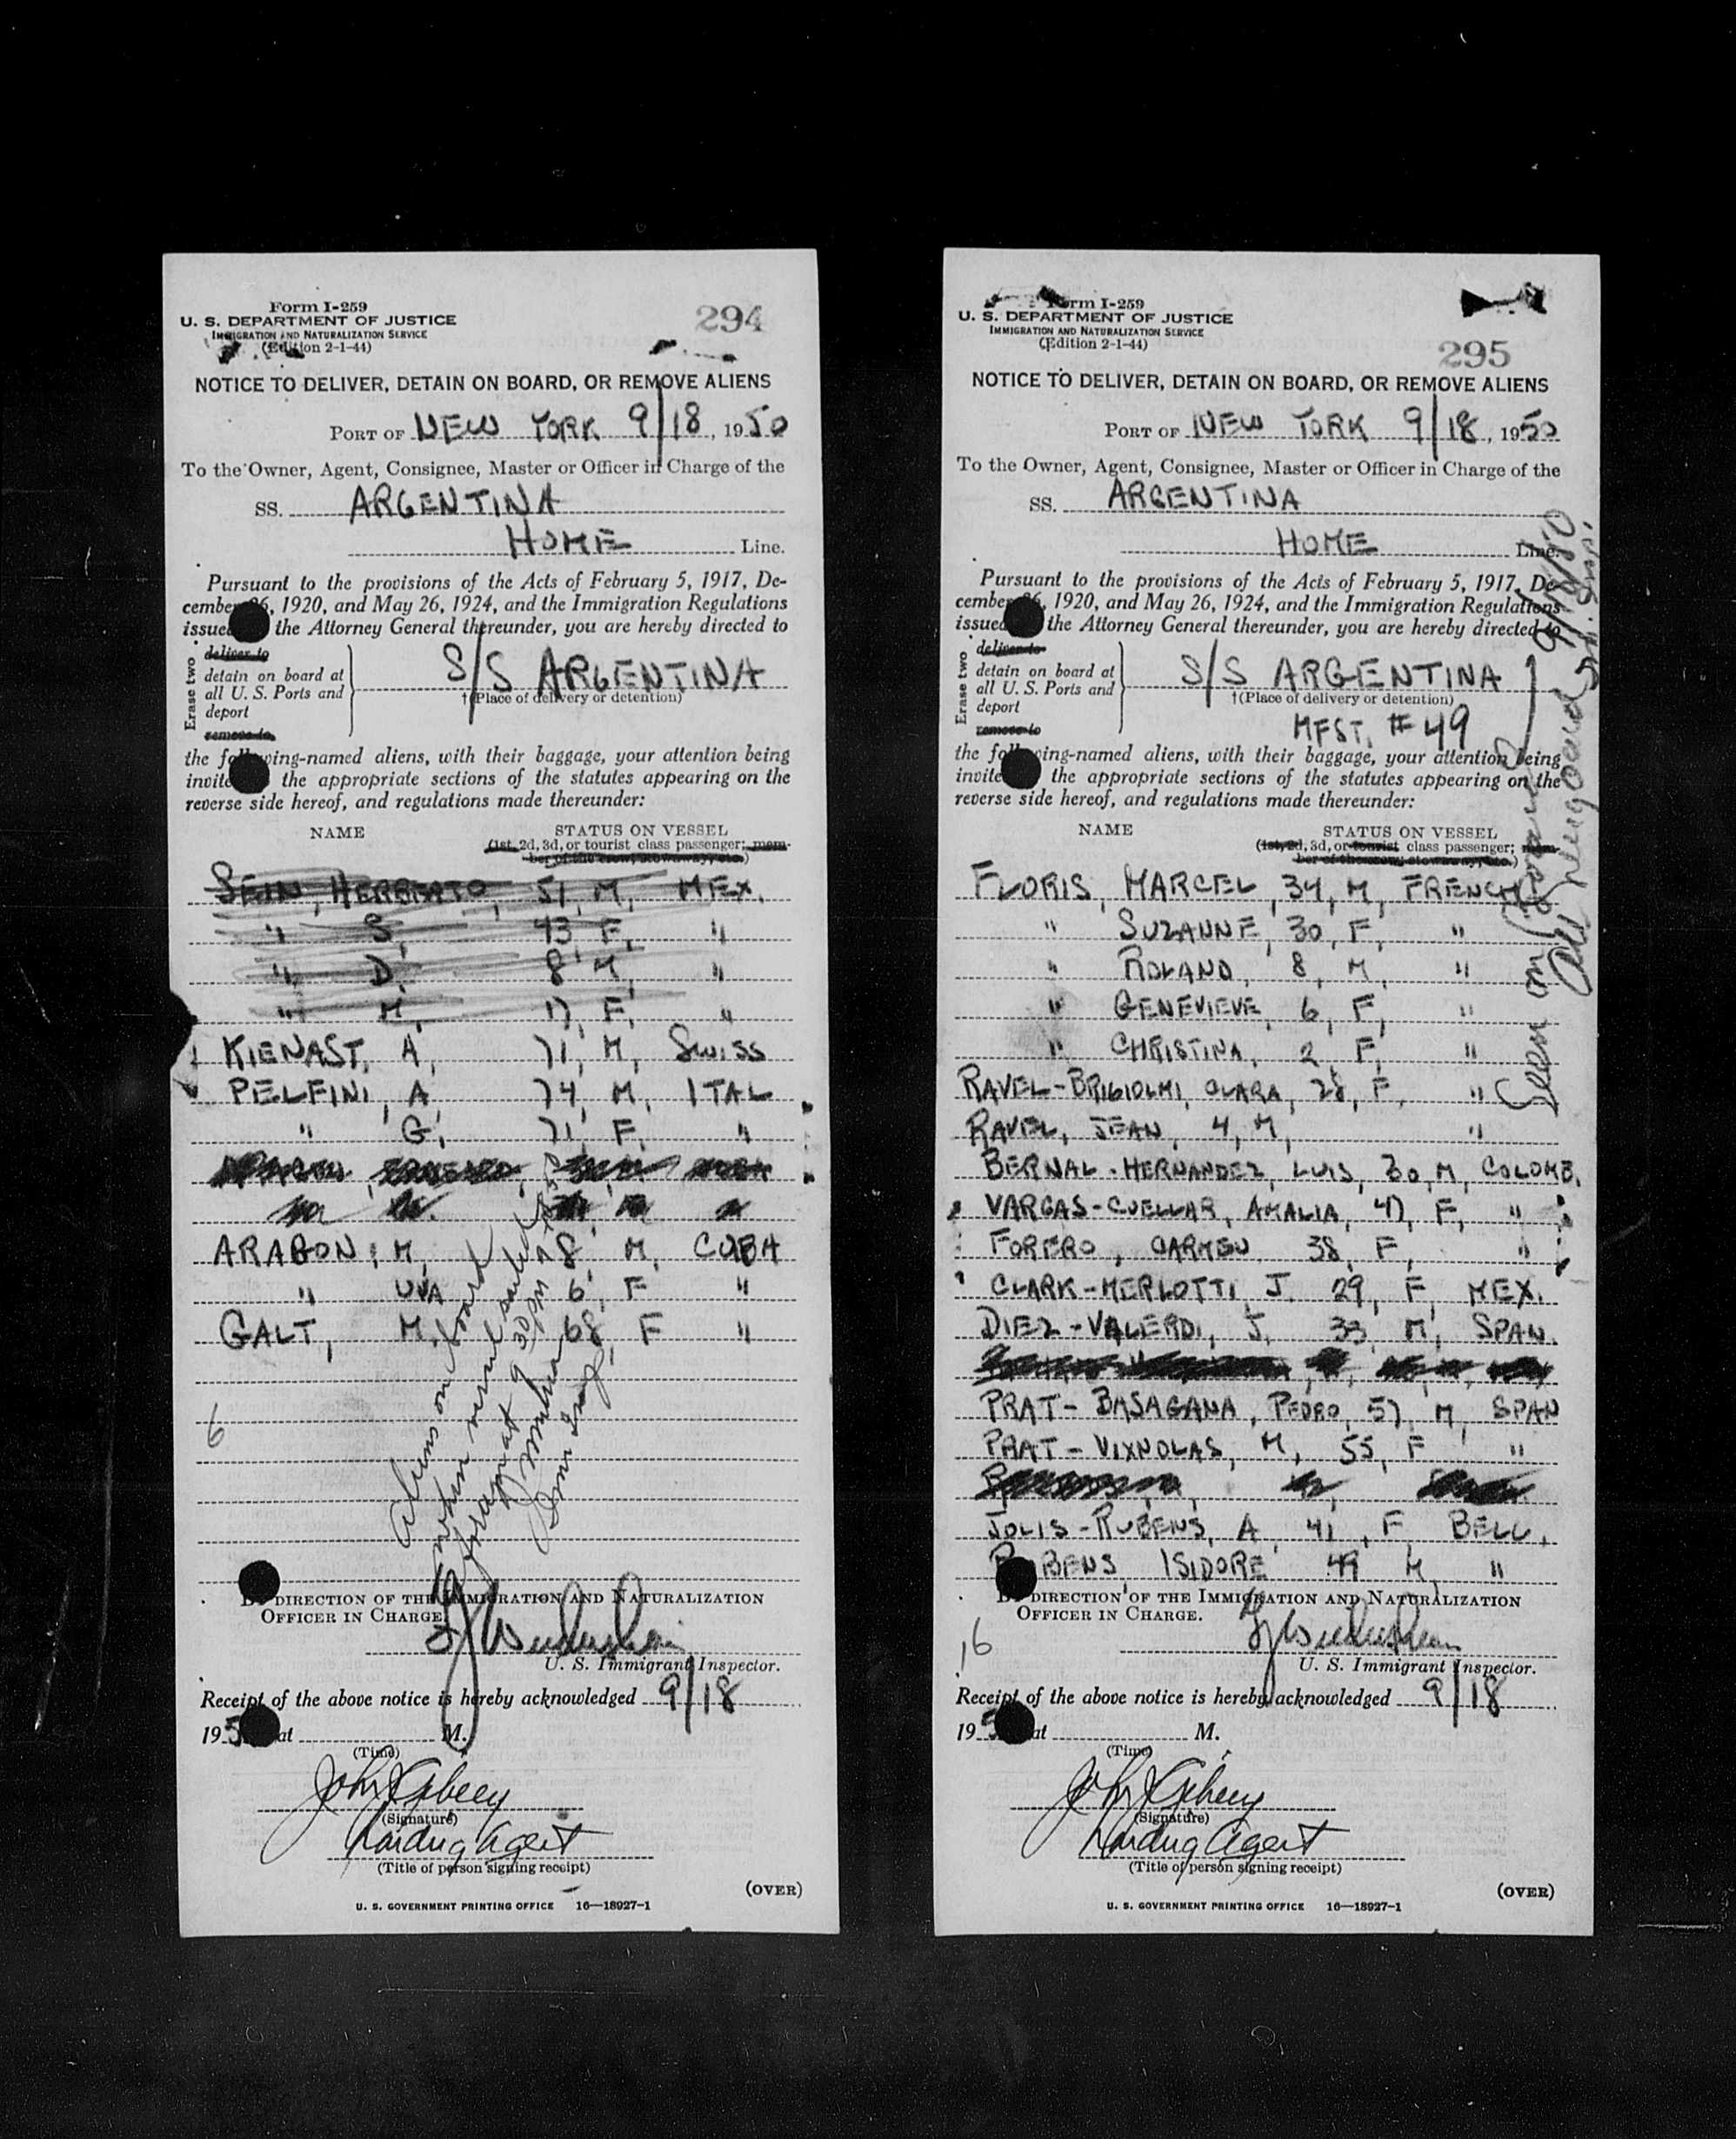 Form I-259
U. S. DEPARTMENT OF JUSTICE
IMMIGRATION AND NATURALIZATION SERVICE
(Edition 2-1-44)
294
NOTICE TO DELIVER, DETAIN ON BOARD, OR REMOVE ALIENS
PORT OF NEW YORK 9/18, 1950
To the Owner, Agent, Consignee, Master or Officer in Charge of the
SS. ARGENTINA
HOME Line.
Pursuant to the provisions of the Acts of February 5, 1917, De-
cember 26, 1920, and May 26, 1924, and the Immigration Regulations
issued the Attorney General thereunder, you are hereby directed to
Erase two
deliver to
detain on board at
all U. S. Ports and
deport
remove to
S/S ARGENTINA
†(Place of delivery or detention)
the following-named aliens, with their baggage, your attention being
invited the appropriate sections of the statutes appearing on the
reverse side hereof, and regulations made thereunder:
NAME STATUS ON VESSEL
(1st, 2d, 3d, or tourist class passenger; mem-
ber of the crew, stowaway, etc.)
SEIN, HERBERTO, 51, M, MEX.
" S, 43, F, "
" D, 8, M, "
" M, 17, F, "
KIENAST, A, 71, M, SWISS
PELFINI, A, 74, M, ITAL
" G, 71, F, "
ARAGON, M, 8, M, CUBA
" UVA 6, F "
GALT, M, 68, F "
6
Aliens on board
when vessel sailed
from at 9 30 PM
Imm Insp
BY DIRECTION OF THE IMMIGRATION AND NATURALIZATION
OFFICER IN CHARGE.
U. S. Immigrant Inspector.
Receipt of the above notice is hereby acknowledged 9/18
195 at M.
(Time)
John
(Signature)
Landing Agent
(Title of person signing receipt)
(OVER)
U. S. GOVERNMENT PRINTING OFFICE 16—18927-1
Form I-259
U. S. DEPARTMENT OF JUSTICE
IMMIGRATION AND NATURALIZATION SERVICE
(Edition 2-1-44)
295
NOTICE TO DELIVER, DETAIN ON BOARD, OR REMOVE ALIENS
PORT OF NEW YORK 9/18, 1950
To the Owner, Agent, Consignee, Master or Officer in Charge of the
SS. ARGENTINA
HOME Line.
Pursuant to the provisions of the Acts of February 5, 1917, De-
cember 26, 1920, and May 26, 1924, and the Immigration Regulations
issued the Attorney General thereunder, you are hereby directed to
Erase two
deliver to
detain on board at
all U. S. Ports and
deport
remove to
S/S ARGENTINA
†(Place of delivery or detention)
MFST. #49
the following-named aliens, with their baggage, your attention being
invited the appropriate sections of the statutes appearing on the
reverse side hereof, and regulations made thereunder:
NAME STATUS ON VESSEL
(1st, 2d, 3d, or tourist class passenger; mem-
ber of the crew, stowaway, etc.)
FLORIS, MARCEL, 34, M, FRENCH
" SUZANNE, 30, F, "
" ROLAND, 8, M, "
" GENEVIEVE, 6, F, "
" CHRISTINA, 2, F, "
RAVEL-BRIGIOLMI, CLARA, 28, F, "
RAVEL, JEAN, 4, M, "
BERNAL-HERNANDEZ, LUIS, 30, M, COLOMB.
VARGAS-CUELLAR, AMALIA, 47, F, "
FORERO, CARMEN 38, F, "
CLARK-MERLOTTI, J. 29, F, MEX.
DIEZ-VALERDI, J. 33, M, SPAN.
PRAT-BASAGANA, PEDRO, 57, M, SPAN
PRAT-VIXNOLAS, M, 55, F "
JOLIS-RUBENS, A 41, F BELG.
RUBENS ISIDORE 49 M "
Seen on board 9/18/50
16
BY DIRECTION OF THE IMMIGRATION AND NATURALIZATION
OFFICER IN CHARGE.
U. S. Immigrant Inspector.
Receipt of the above notice is hereby acknowledged 9/18
195 at M.
(Time)
John
(Signature)
Landing Agent
(Title of person signing receipt)
(OVER)
U. S. GOVERNMENT PRINTING OFFICE 16—18927-1